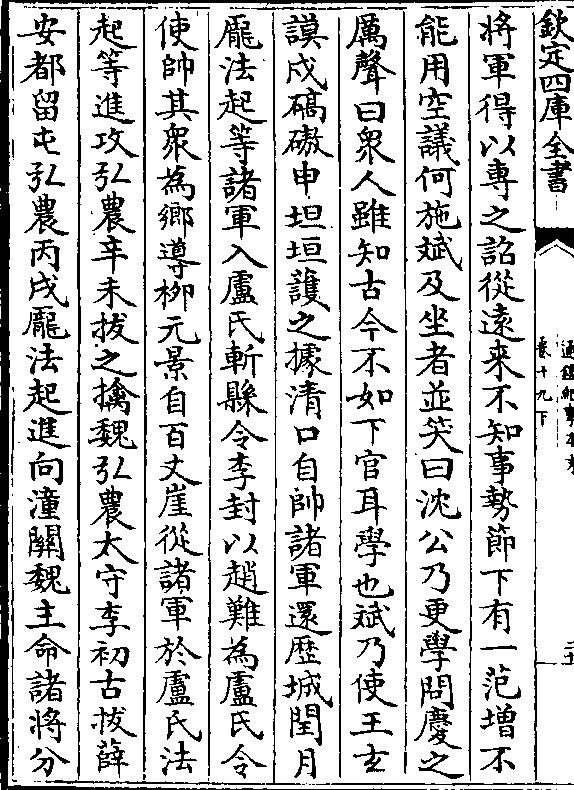 欽定四庫全書
通鑑紀事本末
卷十九下
將軍得以專之詔從遠來不知事勢節下有一范增不
能用空議何施斌及坐者並笑曰沈公乃更學問慶之
厲聲曰衆人雖知古今不如下官耳學也斌乃使王玄
謨戍碻磝申坦垣護之據清口自帥諸軍還歴城閏月
龎法起等諸軍入盧氏斬縣令李封以趙難為盧氏令
使帥其衆為鄉導栁元景自百丈崖從諸軍於盧氏法
起等進攻弘農辛未拔之擒魏弘農太守李初古拔薛
安都留屯弘農丙戍龎法起進向潼闗魏主命諸將分